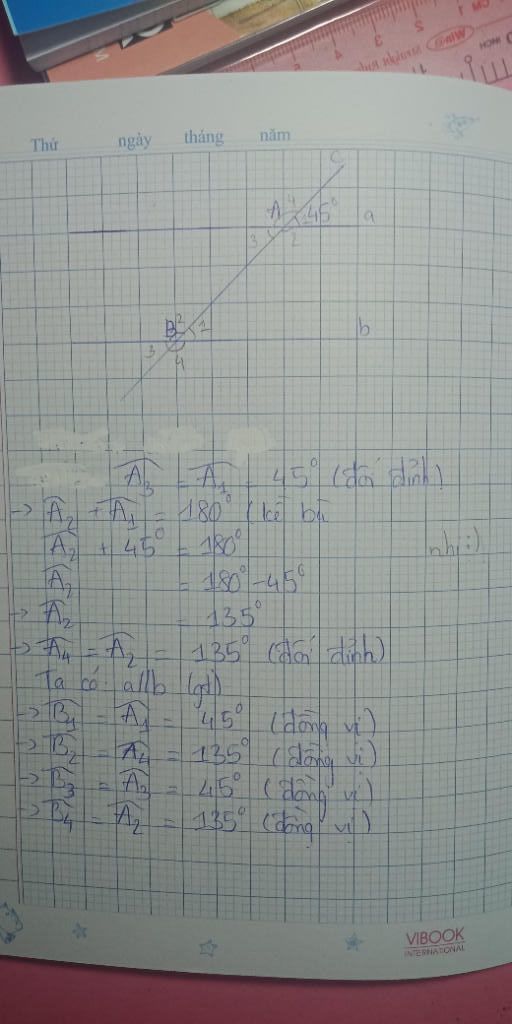 Thứ ngày tháng năm
C
A 4 45° a
3 2
B 2 1 b
3 4
A₃ = A₁ = 45° (đối đỉnh)
→ A₂ + A₁ = 180° (kề bù
A₂ + 45° = 180°
nhị :)
A₂ = 180° - 45°
→ A₂ = 135°
→ A₄ = A₂ = 135° (đối đỉnh)
Ta có a//b (gt)
→ B₁ = A₁ = 45° (đồng vị)
→ B₂ = A₄ = 135° (đồng vị)
→ B₃ = A₃ = 45° (đồng vị)
→ B₄ = A₂ = 135° (đồng vị)
VIBOOK
INTERNATIONAL